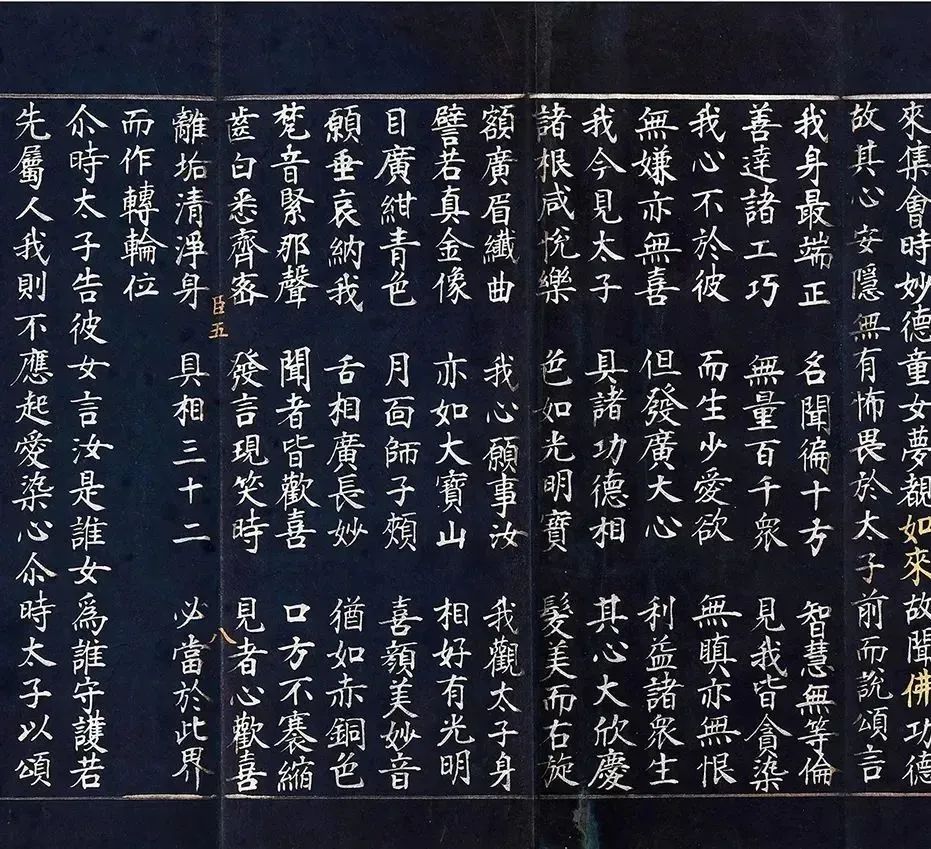 來集會時妙德童女夢覩如來故聞佛功德
故其心安隱無有怖畏於太子前而說頌言
我身最端正 名聞徧十方 智慧無等倫
善達諸工巧 無量百千衆 見我皆貪染
我心不於彼 而生少愛欲 無瞋亦無恨
無嫌亦無喜 但發廣大心 利益諸衆生
我今見太子 具諸功德相 其心大欣慶
諸根咸悅樂 色如光明寶 髮美而右旋
額廣眉纖曲 我心願事汝 我觀太子身
譬若真金像 亦如大寶山 相好有光明
目廣紺青色 月面師子頰 喜顏美妙音
願垂哀納我 舌相廣長妙 猶如赤銅色
梵音緊那聲 聞者皆歡喜 口方不褰縮
齒白悉齊密 發言現笑時 見者心歡喜
臣五 八
離垢清淨身 具相三十二 必當於此界
而作轉輪位
尒時太子告彼女言汝是誰女爲誰守護若
先屬人我則不應起愛染心尒時太子以頌